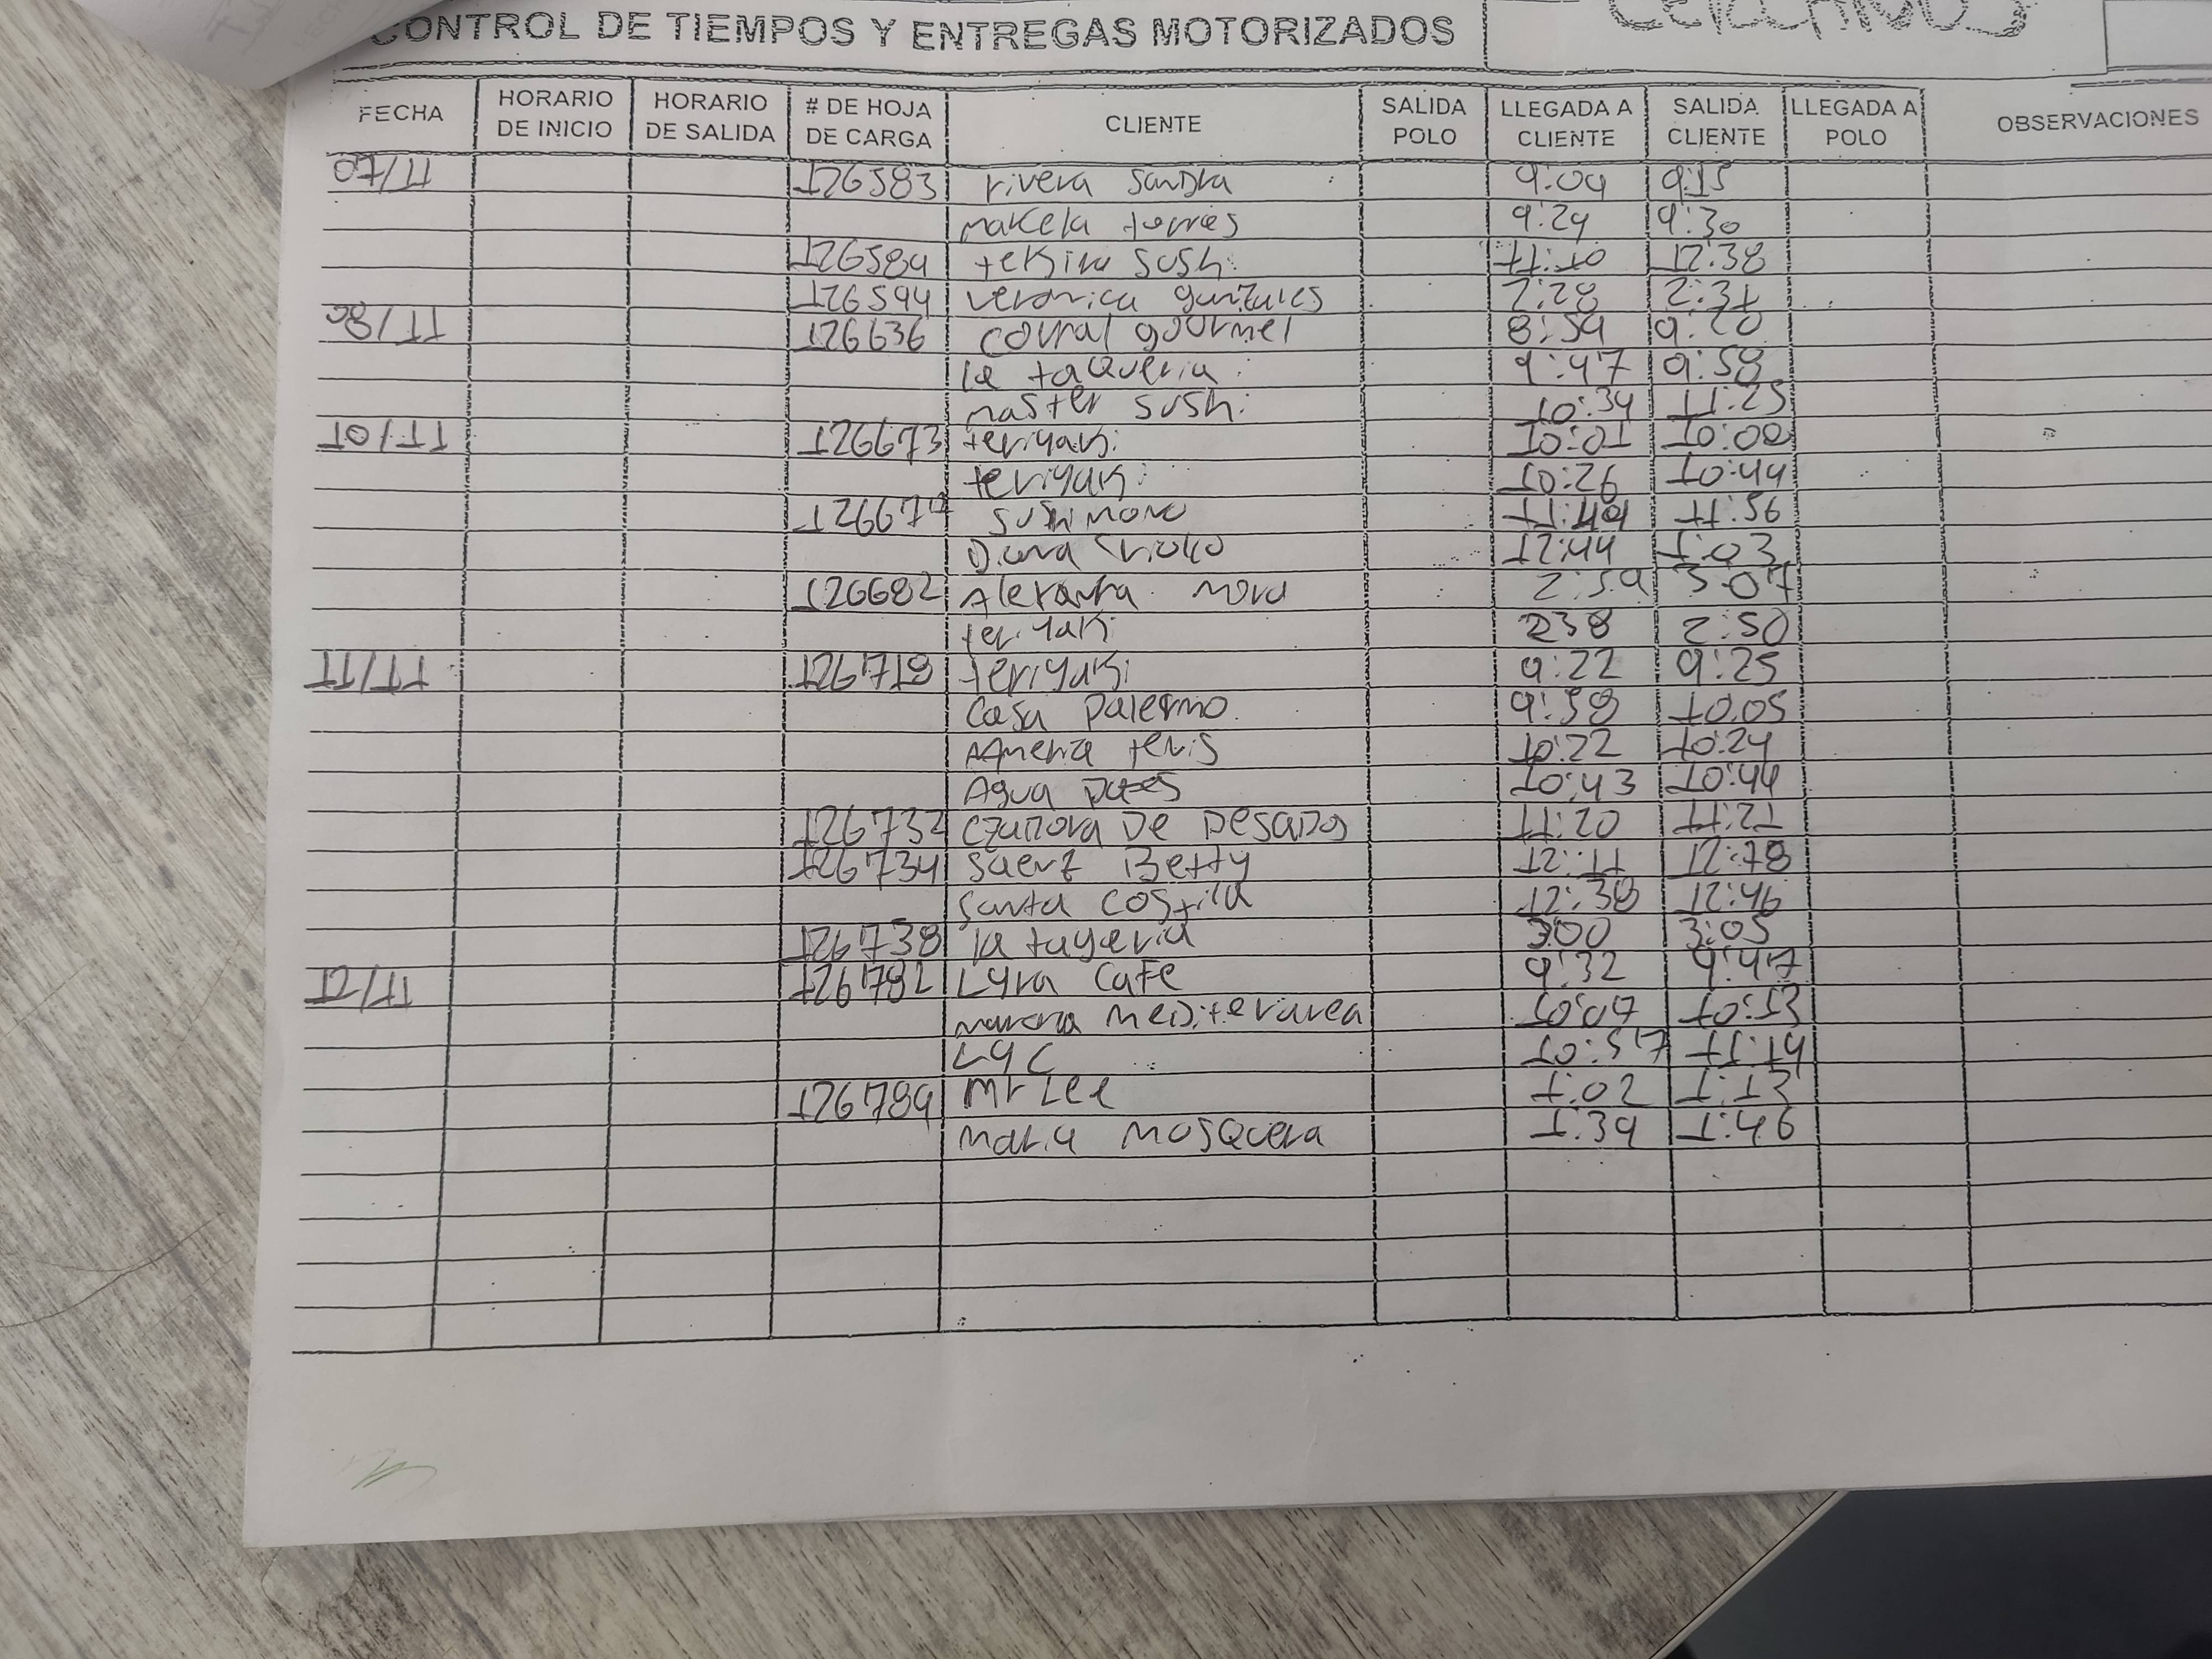 CONTROL DE TIEMPOS Y ENTREGAS MOTORIZADOS
FECHA HORARIO DE INICIO HORARIO DE SALIDA # DE HOJA DE CARGA CLIENTE SALIDA POLO LLEGADA A CLIENTE SALIDA CLIENTE LLEGADA A POLO OBSERVACIONES
07/11 126583 rivera sandra 9:09 9:15
makela torres 9:29 9:30
126589 tekira sushi 11:10 12:38
126594 veronica gunzales 2:28 2:31
08/11 126636 corral gourmet 8:59 9:20
la taqueria 9:47 9:58
master sushi 10:34 11:25
10/11 126673 teriyaki 10:01 10:00
teriyaki 10:26 10:44
sushi mono 11:49 11:56
Diana 12:44 1:03
126682 Alexandra mora 2:59 3:07
teriyaki 2:38 2:50
11/11 126718 teriyaki 9:22 9:25
Casa Palermo 9:58 10:05
America tenis 10:22 10:24
Agua 10:43 10:44
126732 DE PESADOS 11:20 11:21
126734 Saenz Betty 12:11 12:18
Santa Costilla 12:38 12:46
126738 la taqeria 3:00 3:05
12/11 126782 Lyra Cafe 9:32 9:47
Mediterranea 10:07 10:13
LYC 10:57 11:19
126789 Mr Lee 1:02 1:12
Maria Mosquera 1:39 1:46